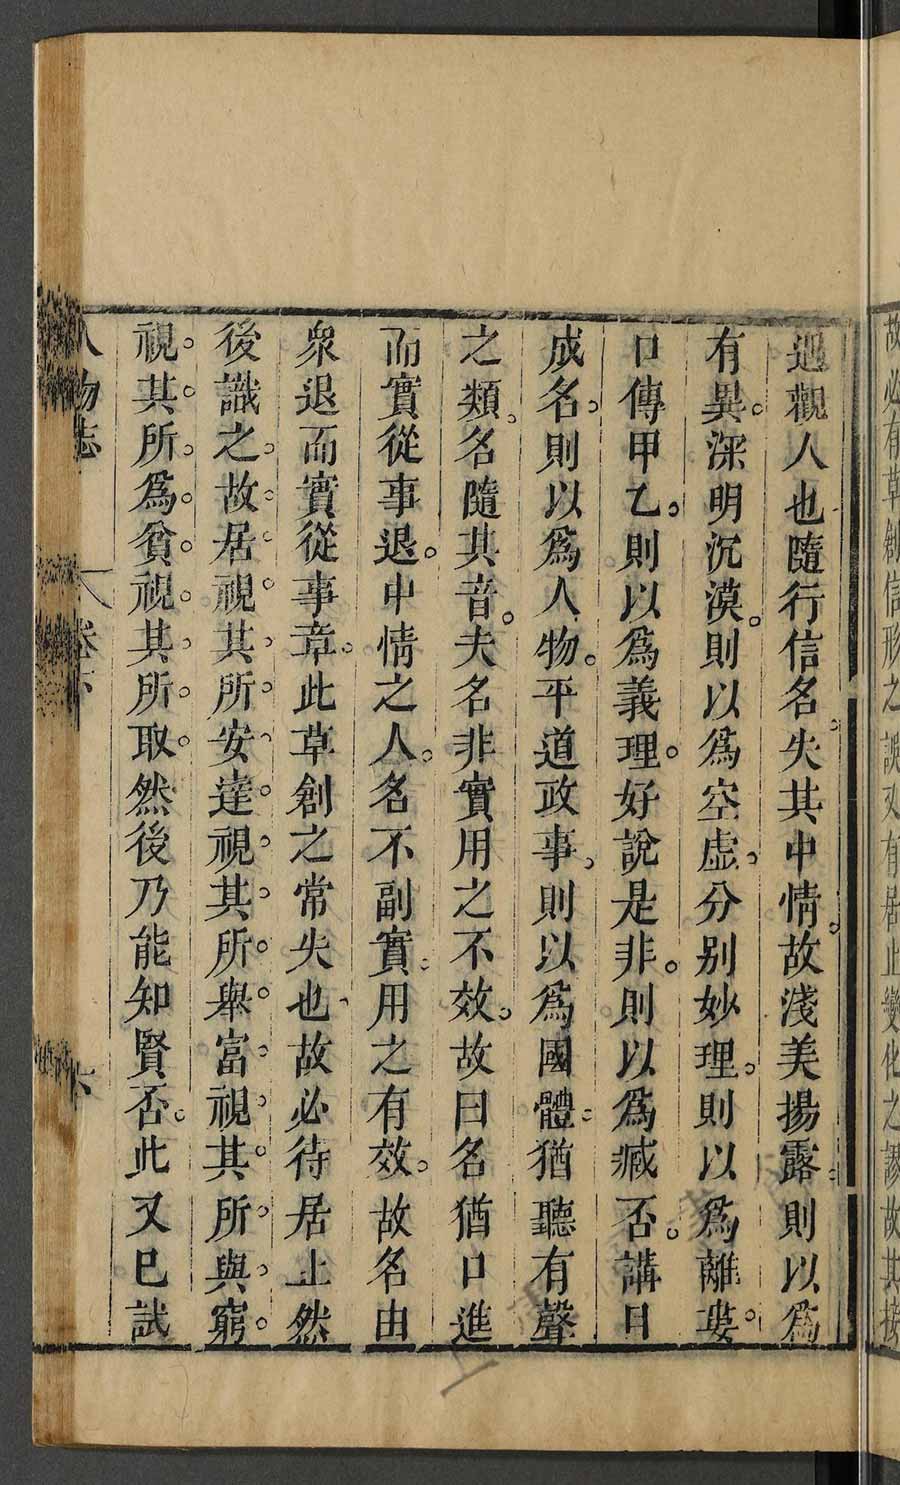 故必有草創信形之誤又有居止變化之謬故其接
過觀人也隨行信名失其中情故淺美揚露則以爲
有異深明沉漠則以爲空虛分別妙理則以爲離婁
口傳甲乙則以爲義理好說是非則以爲臧否講目
成名則以爲人物平道政事則以爲國體猶聽有聲
之類名隨其音夫名非實用之不效故曰名猶口進
而實從事退中情之人名不副實用之有效故名由
衆退而實從事章此草創之常失也故必待居止然
後識之故居視其所安達視其所舉富視其所與窮
視其所爲貧視其所取然後乃能知賢否此又已試
人物志 卷下